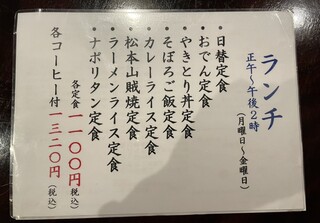 ランチ
正午〜午後2時
(月曜日〜金曜日)
・日替定食
・おでん定食
・やきとり丼定食
・そぼろご飯定食
・カレーライス定食
・松本山賊焼定食
・ラーメンライス定食
・ナポリタン定食
各定食 一一〇〇円(税込)
各コーヒー付 一三二〇円(税込)